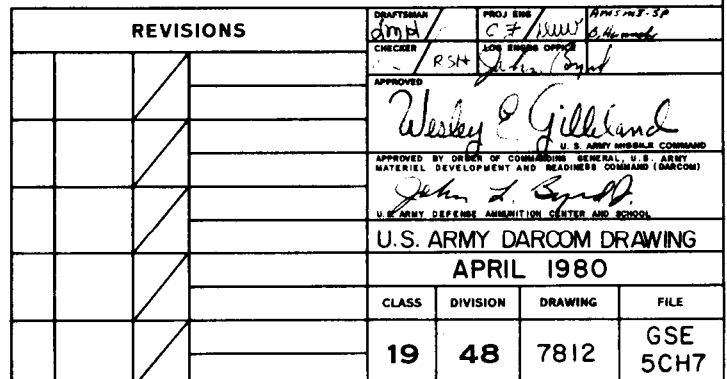 REVISIONS
DRAFTSMAN
PROJ ENG
CHECKER
RSH
LOG ENGRG OFFICE
John Byrd
APPROVED
Wesley E Gilleland
U. S. ARMY MISSILE COMMAND
APPROVED BY ORDER OF COMMANDING GENERAL, U.S. ARMY
MATERIEL DEVELOPMENT AND READINESS COMMAND (DARCOM)
John L. Byrd
U.S. ARMY DEFENSE AMMUNITION CENTER AND SCHOOL
U.S. ARMY DARCOM DRAWING
APRIL 1980
CLASS DIVISION DRAWING FILE
19 48 7812 GSE
5CH7